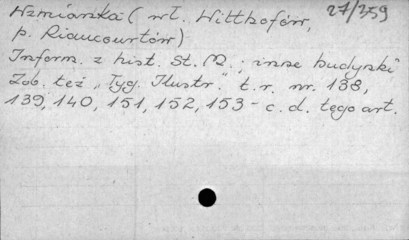 Wzmianka (wł. Witthofów, 27/359
p. Riaucourtów)
Inform. z hist. St. M.; inne budynki
Zob. też "Tyg. Ilustr." t. r. nr. 138,
139, 140, 151, 152, 153 - c. d. tego art.